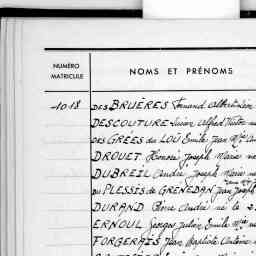 NUMÉRO
MATRICULE
NOMS ET PRÉNOMS
1018 DES BRUÈRES Fernand Albert Léon
DESCOUTURE Lucien Alfred Victor
DES GRÉES du LOÛ Emile Jean Mie
DROUET Honoré Joseph Marie né
DUBREIL André Joseph Marie né
DU PLESSIS de GRENEDAN Jean Joseph
DURAND Pierre André né le 2
ERNOUL Georges Julien Emile Mie
FORGERAIS Jean Baptiste Antoine